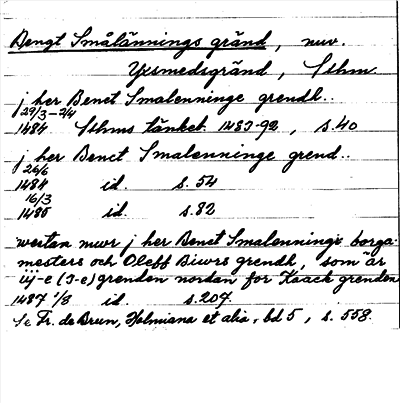 Bengt Smålännings gränd, nuv.
Yxsmedsgränd, Sthm.
j her Benct Smalenninge grendh..
29/3-2/4
1484 Sthms tänkeb. 1483-92, s.40
j her Benct Smalenninge grend..
26/6
1484 id. s.54
16/3
1485 id. s.82
westan mwr j her Benct Smalenninge borga-
mesters och Oleff Biwrs grendh, som är
iij-e (3-e) grenden nordan for Kaack grenden
1487 1/8 id. s.207.
Se Fr. de Brun, Holmiana et alia, bd 5, s. 558.